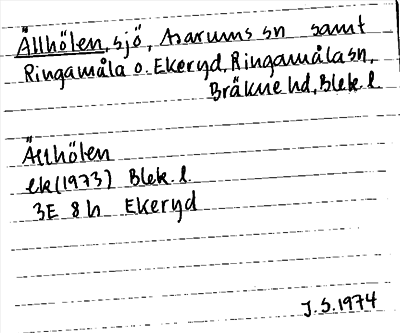 Ällhölen, sjö, Asarums sn samt
Ringamåla o. Ekeryd, Ringamåla sn,
Bräkne hd, Blek. l.
Ällhölen
ek (1973) Blek. l.
3E 8h Ekeryd
J.S. 1974